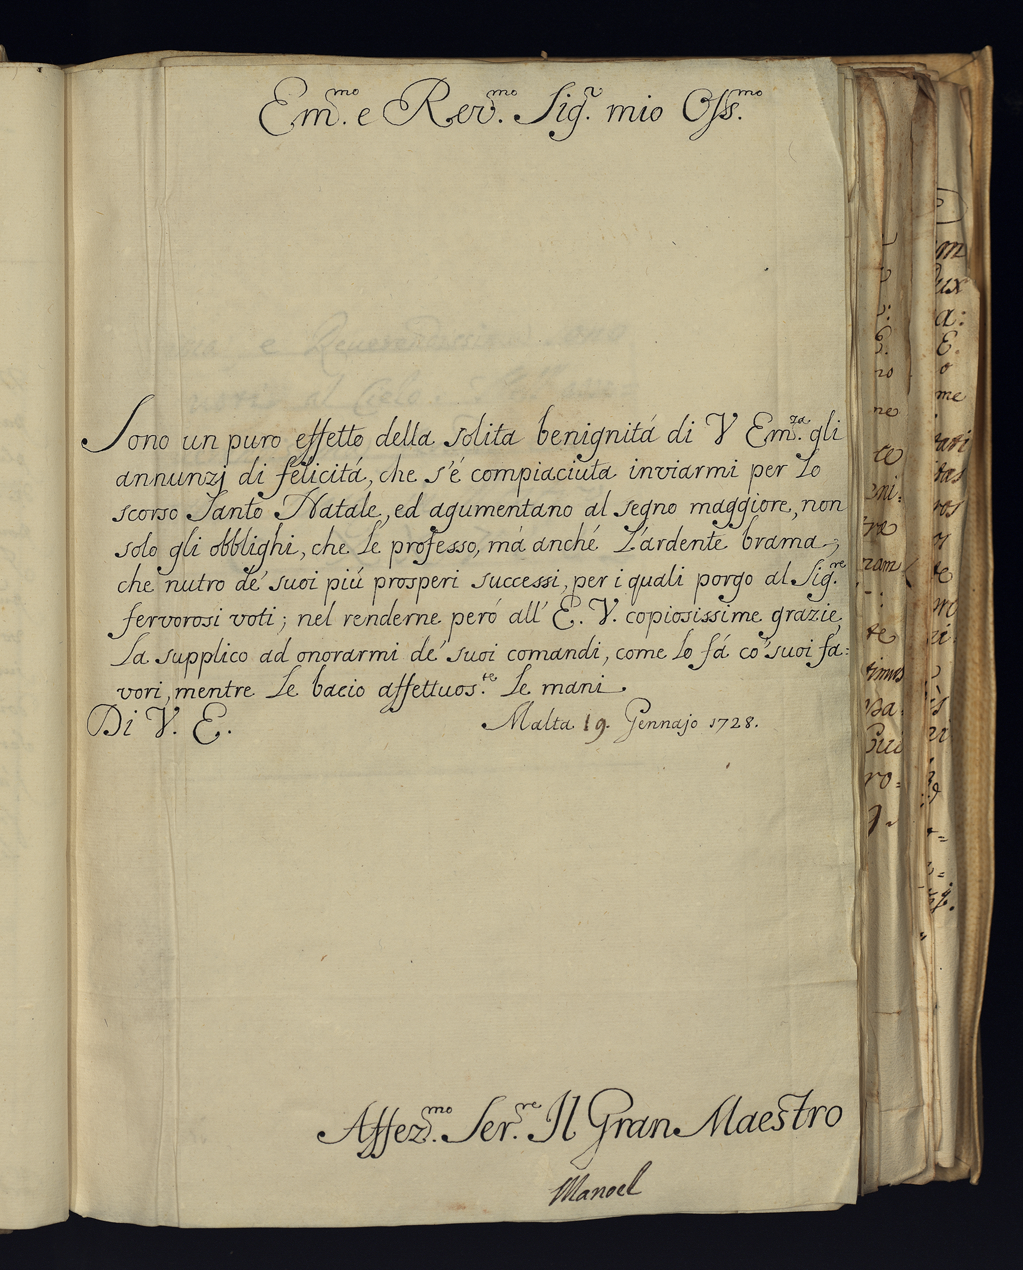 Em.mo e Rev.mo Sig.r mio Oss.mo
Sono un puro effetto della solita benignitá di V Em.za gli
annunzj di felicitá, che s'é compiaciuta inviarmi per lo
scorso Santo Natale, ed agumentano al segno maggiore, non
solo gli obblighi, che le professo, má anché L'ardente brama,
che nutro de' suoi piú prosperi successi, per i quali porgo al Sig.re
fervorosi voti; nel renderne peró all' E. V. copiosissime grazie,
La supplico ad onorarmi de' suoi comandi, come lo fá co' suoi fa=
vori, mentre le bacio affettuos.te le mani.
Di V. E. Malta 19. Gennajo 1728.
Affez.mo Ser.re Il Gran Maestro
Manoel